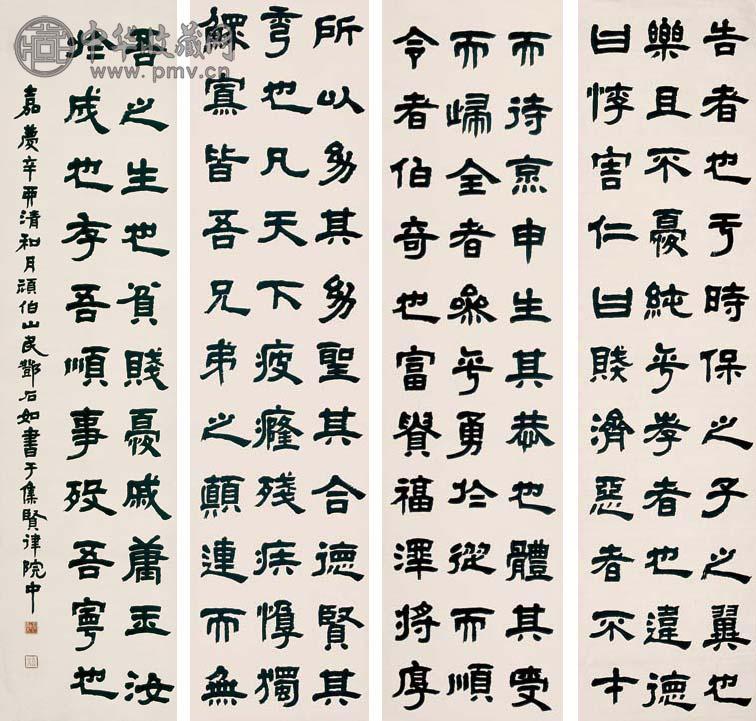 告者也于時保之子之翼也
樂且不憂純乎孝者也違德
曰悖害仁曰賊濟惡者不才
而待烹申生其恭也體其受
而歸全者參乎勇於從而順
令者伯奇也富貴福澤將厚
所以幼其幼聖其合德賢其
秀也凡天下疲癃殘疾惸獨
鰥寡皆吾兄弟之顛連而無
吾之生也貧賤憂戚庸玉汝
於成也存吾順事歿吾寧也
嘉慶辛酉清和月頑伯山民鄧石如書于集賢律院中
中华收藏网
www.pmv.cn